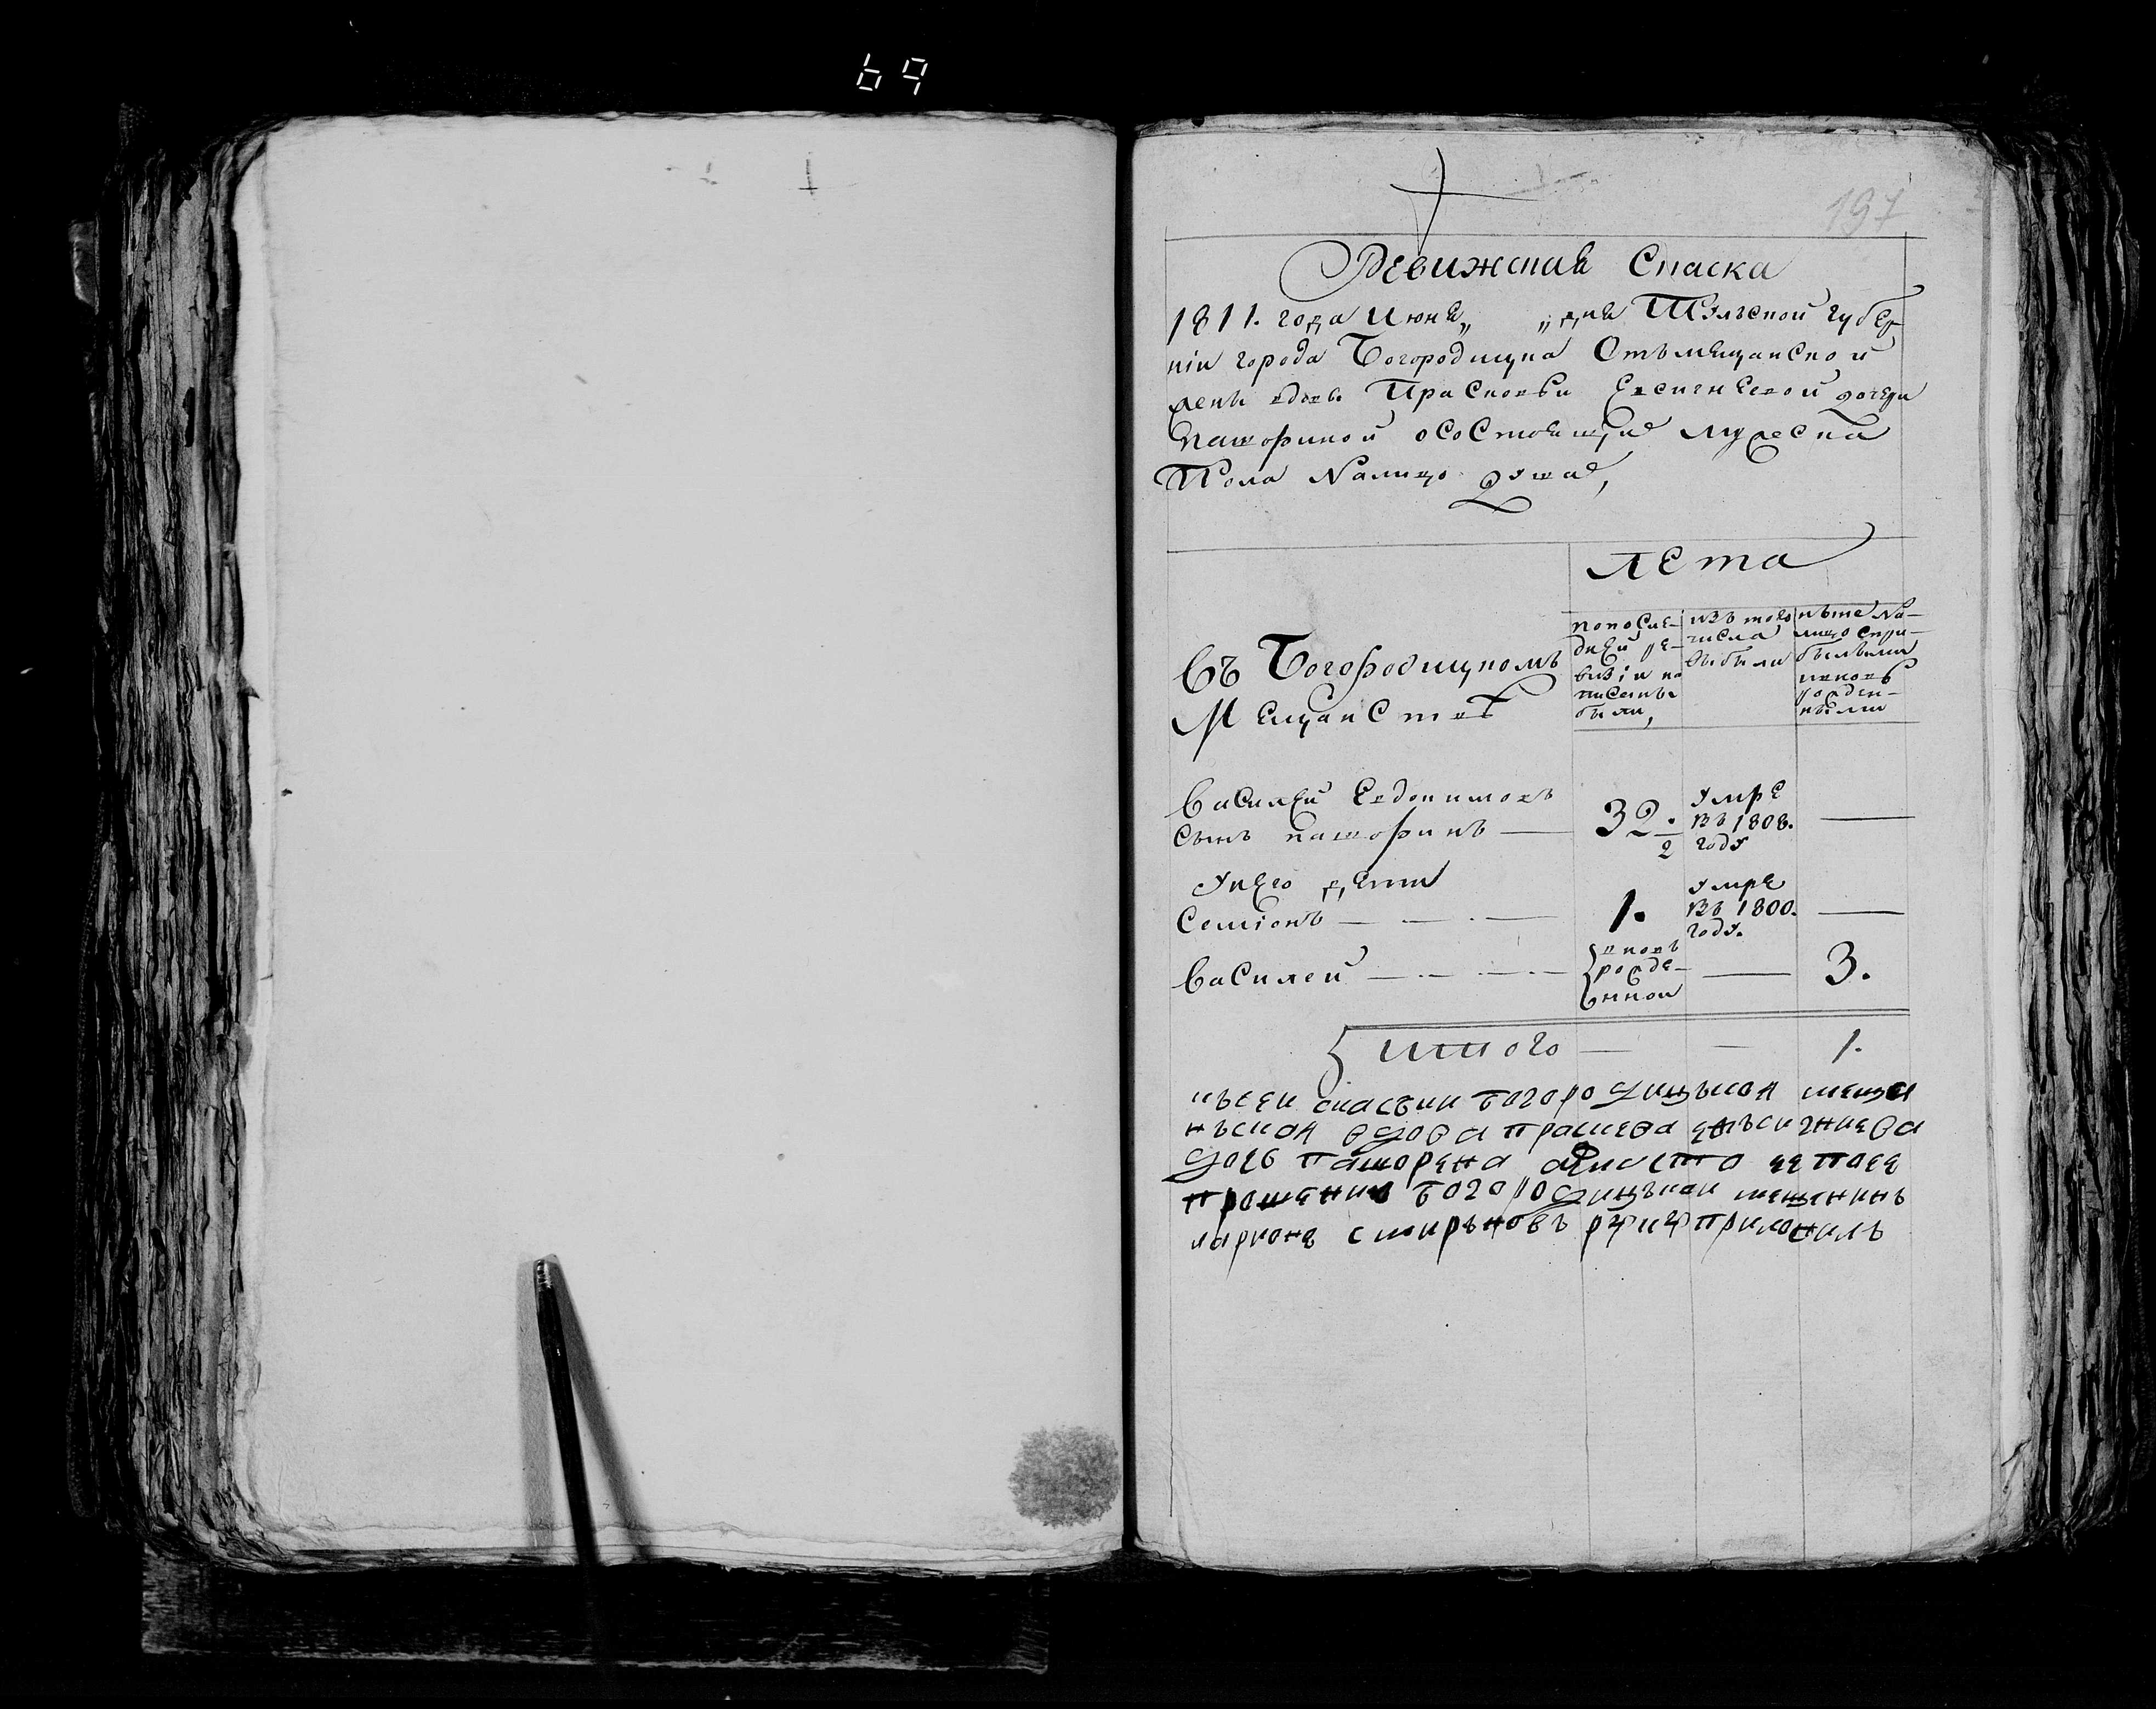 69
197
Ревижская Скаска
1811. года Июня„ „дня Тульской губер
ніи города Богородицка Отъ мещанской
жены вдовы Прасковьи Евсигнеевой дочери
Кашориной о состоящихъ мужеска
Пола Налицо душахъ,
Лета
въ Богородицкомъ
Мещанстве
по послѣ-
дней ре-
визіи на
писаны
были,
изъ того
числа
выбыли
ныне На-
лицо спри-
былыми
и вновь
рожден-
ными
Василей Евдокимовъ
сынъ кашоринъ
32.
2
умре
въ 1808.
году
у него дети
Семіонъ
1.
умре
въ 1800.
году.
Василей
вновь
рожде-
нной
3.
итого
1.
къ сей скаски богородицькая меща
нъская вдова праскева
дочь кашорена а вместо ее по ее
прошению богородицъкои мещенинъ
ларионъ смирьновъ руку приложилъ